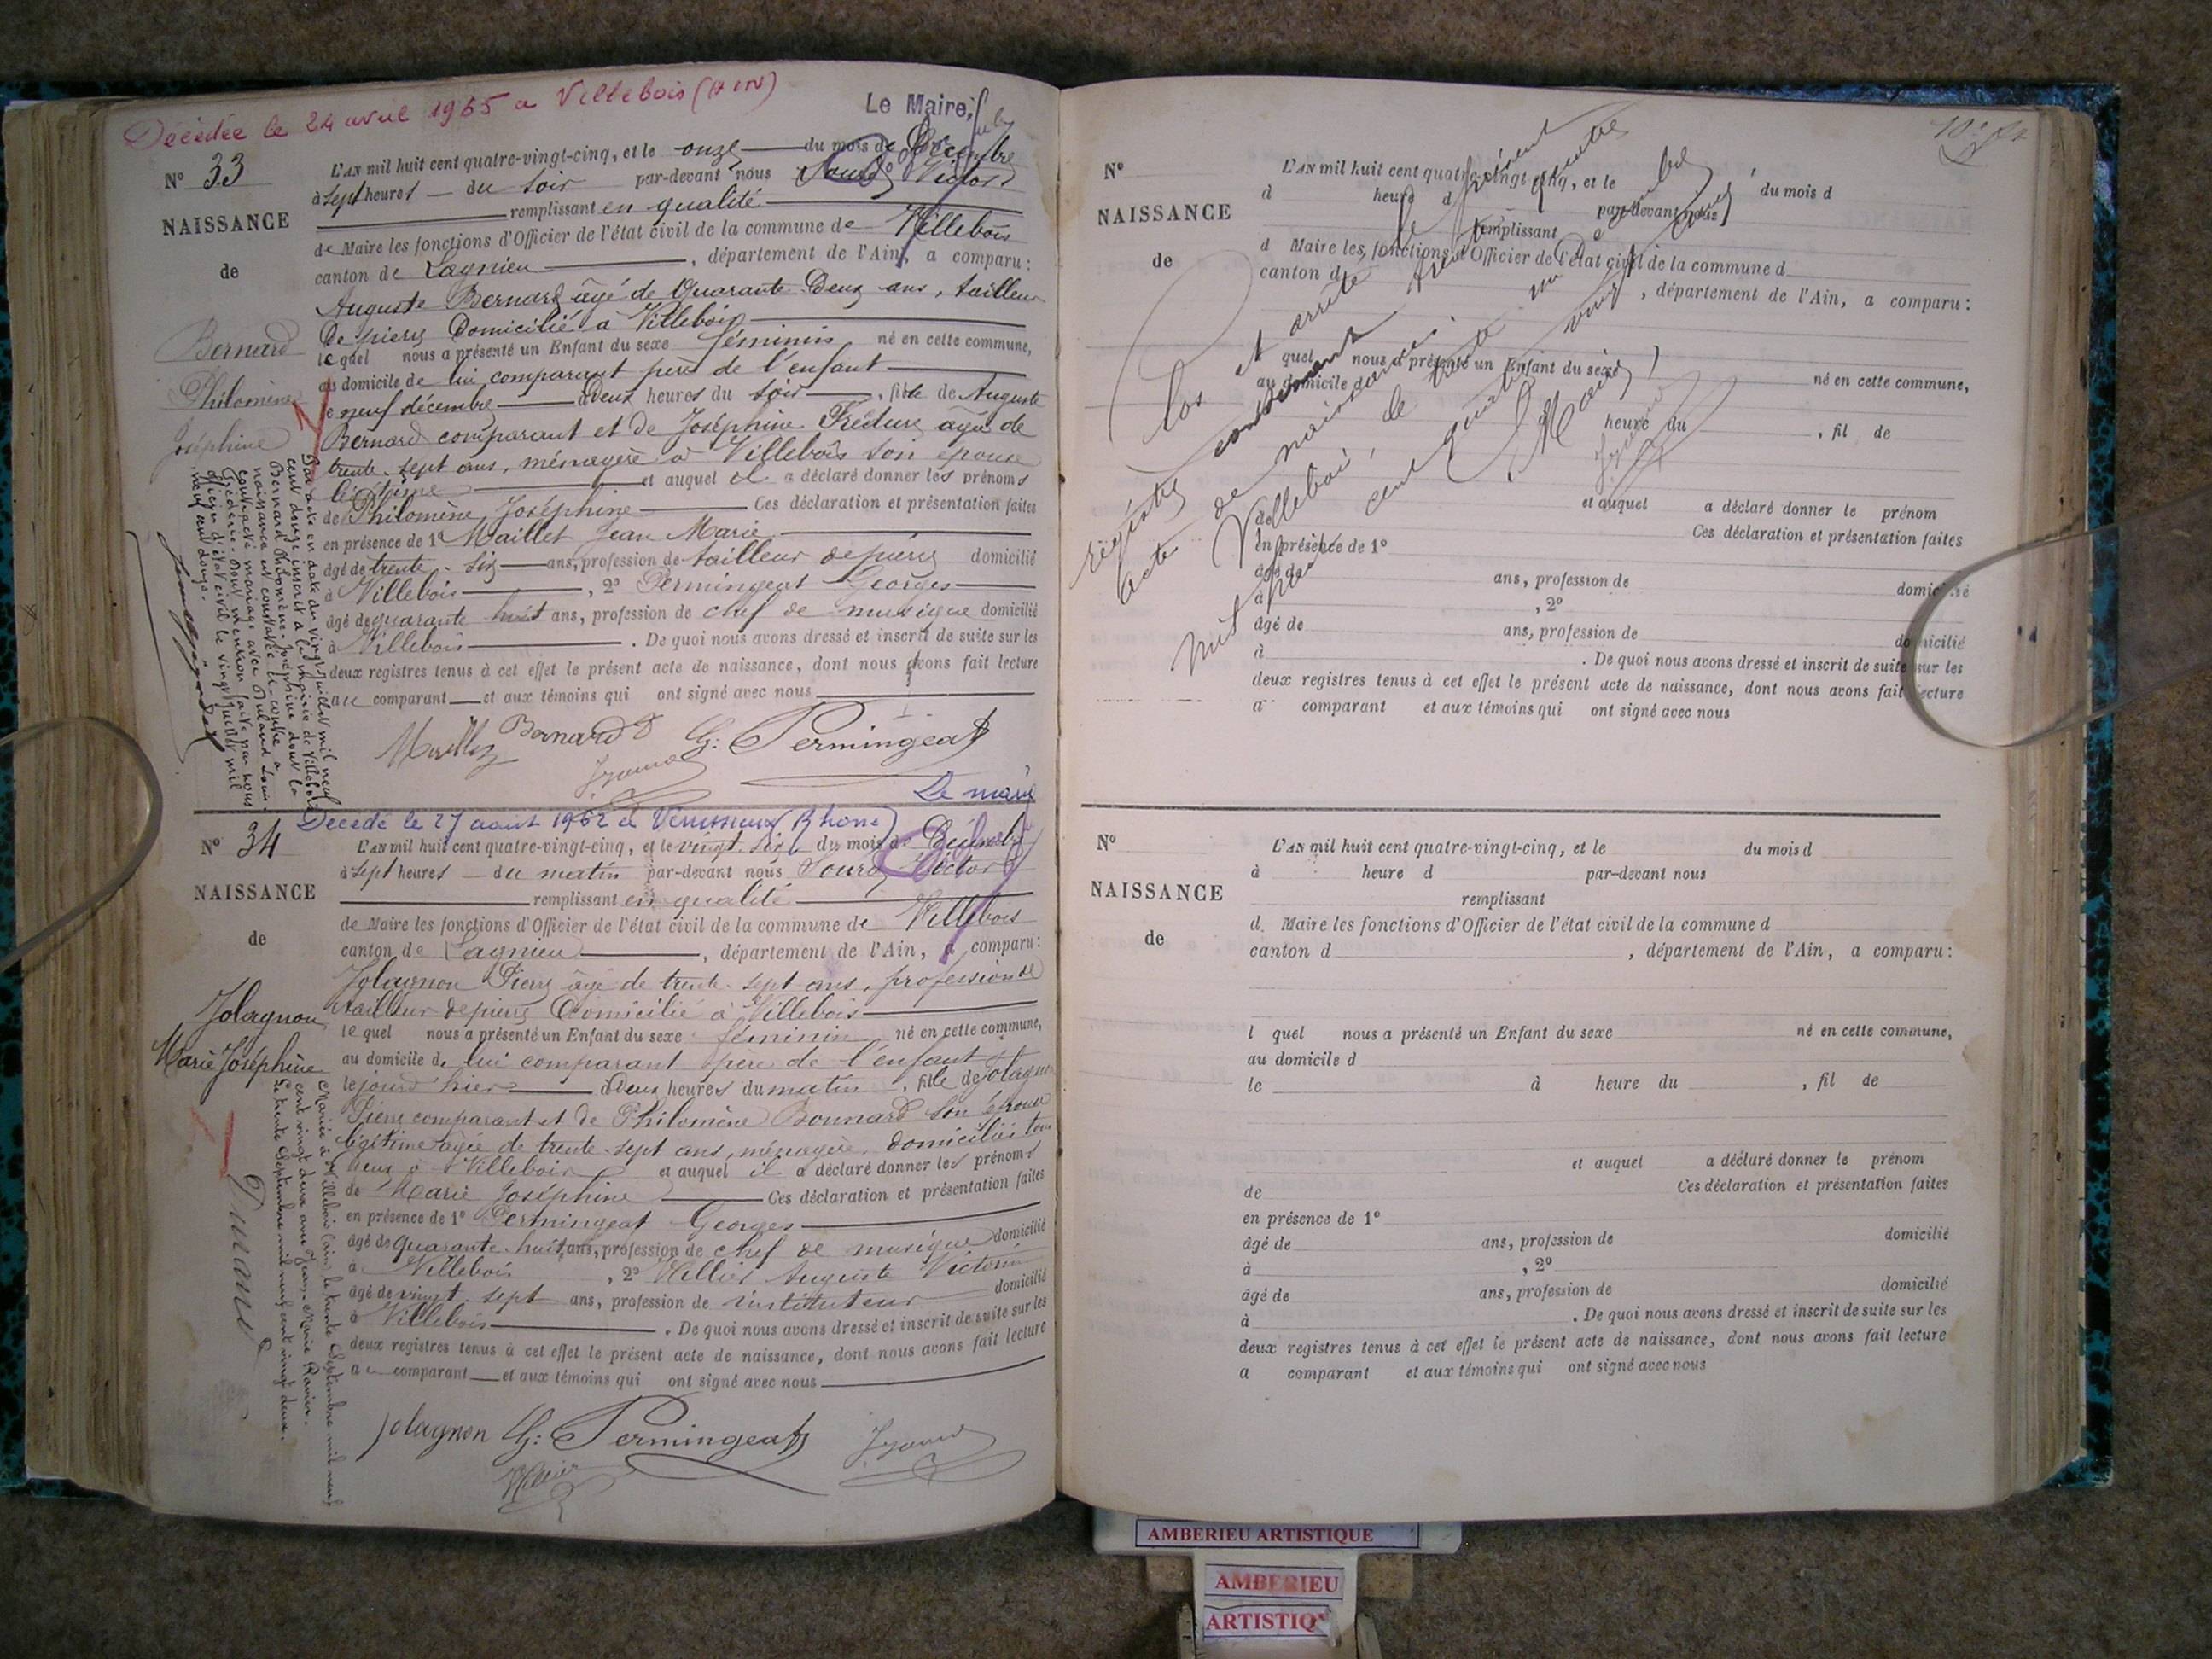 Décédée le 24 avril 1965 a Villebois (Ain)
Le Maire,
N° 33
NAISSANCE
de
Bernard
Philomène
Joséphine
L'AN mil huit cent quatre-vingt-cinq, et le onze du mois de Décembre
à sept heures du soir par-devant nous Victor
remplissant en qualité
de Maire les fonctions d'Officier de l'état civil de la commune de Villebois
canton de Lagnieu, département de l'Ain, a comparu:
Auguste Bernard âgé de Quarante Deux ans, tailleur
De pierre Domicilié à Villebois
lequel nous a présenté un Enfant du sexe féminin né en cette commune,
au domicile de lui comparant père de l'enfant
le neuf décembre à Deux heures du soir, fille de Auguste
Bernard comparant et de Joséphine âgée de
trente-sept ans, ménagère à Villebois son épouse
légitime et auquel il a déclaré donner les prénoms
de Philomène Joséphine Ces déclaration et présentation faites
en présence de 1° Maillet Jean Marie
âgé de trente-six ans, profession de tailleur de pierre domicilié
à Villebois, 2° Permingeat Georges
âgé de quarante huit ans, profession de chef de musique domicilié
à Villebois. De quoi nous avons dressé et inscrit de suite sur les
deux registres tenus à cet effet le présent acte de naissance, dont nous avons fait lecture
au comparant et aux témoins qui ont signé avec nous
Maillet Bernard G: Permingeat
Par acte en date du vingt juillet mil neuf
cent douze inscrit à la mairie de Villebois
Bernard Philomène Joséphine dont la
naissance est constatée ci-contre a
contracté mariage avec
dont mention faite par nous
officier d'état civil le vingt juillet mil
neuf cent douze.
Le maire
Décédé le 27 août 1962 à Vénissieux (Rhone)
N° 34
NAISSANCE
de
Jolagnon
Marie Joséphine
L'AN mil huit cent quatre-vingt-cinq, et le vingt six du mois de Décembre
à sept heures du matin par-devant nous Victor
remplissant en qualité
de Maire les fonctions d'Officier de l'état civil de la commune de Villebois
canton de Lagnieu, département de l'Ain, a comparu:
Jolagnon Pierre âgé de trente-sept ans, profession de
tailleur de pierre Domicilié à Villebois
lequel nous a présenté un Enfant du sexe féminin né en cette commune,
au domicile de lui comparant père de l'enfant et
le jourd'hier à Deux heures du matin, fille de Jolagnon
Pierre comparant et de Philomène Bonnard son épouse
légitime âgée de trente-sept ans, ménagère, domiciliés tous
deux à Villebois et auquel il a déclaré donner les prénoms
de Marie Joséphine Ces déclaration et présentation faites
en présence de 1° Permingeat Georges
âgé de quarante-huit ans, profession de chef de musique domicilié
à Villebois, 2° Auguste Victorin
âgé de vingt-sept ans, profession de instituteur domicilié
à Villebois. De quoi nous avons dressé et inscrit de suite sur les
deux registres tenus à cet effet le présent acte de naissance, dont nous avons fait lecture
au comparant et aux témoins qui ont signé avec nous
Jolagnon G: Permingeat
Mariée à Villebois (ain) le trente Septembre mil neuf
cent vingt deux avec Jean-Marie
Le trente Septembre mil neuf cent vingt deux.
Durand
N°
NAISSANCE
de
L'AN mil huit cent quatre-vingt-cinq, et le du mois d
à heure d par-devant nous
remplissant
d Maire les fonctions d'Officier de l'état civil de la commune d
canton d, département de l'Ain, a comparu:
quel nous a présenté un Enfant du sexe né en cette commune,
au domicile
heure du, fil de
et auquel a déclaré donner le prénom
de Ces déclaration et présentation faites
en présence de 1°
âgé de ans, profession de domicilié
à, 2°
âgé de ans, profession de domicilié
à. De quoi nous avons dressé et inscrit de suite sur les
deux registres tenus à cet effet le présent acte de naissance, dont nous avons fait lecture
a comparant et aux témoins qui ont signé avec nous
Clos et arrêté le présent
registre contenant trente quatre
acte de naissance.
Villebois, le trente un décembre
mil huit cent quatre vingt cinq
Le Maire
N°
NAISSANCE
de
L'AN mil huit cent quatre-vingt-cinq, et le du mois d
à heure d par-devant nous
remplissant
d. Maire les fonctions d'Officier de l'état civil de la commune d
canton d, département de l'Ain, a comparu:
l quel nous a présenté un Enfant du sexe né en cette commune,
au domicile d
le à heure du, fil de
et auquel a déclaré donner le prénom
de Ces déclaration et présentation faites
en présence de 1°
âgé de ans, profession de domicilié
à, 2°
âgé de ans, profession de domicilié
à. De quoi nous avons dressé et inscrit de suite sur les
deux registres tenus à cet effet le présent acte de naissance, dont nous avons fait lecture
a comparant et aux témoins qui ont signé avec nous
AMBERIEU ARTISTIQUE
AMBERIEU
ARTISTIQ